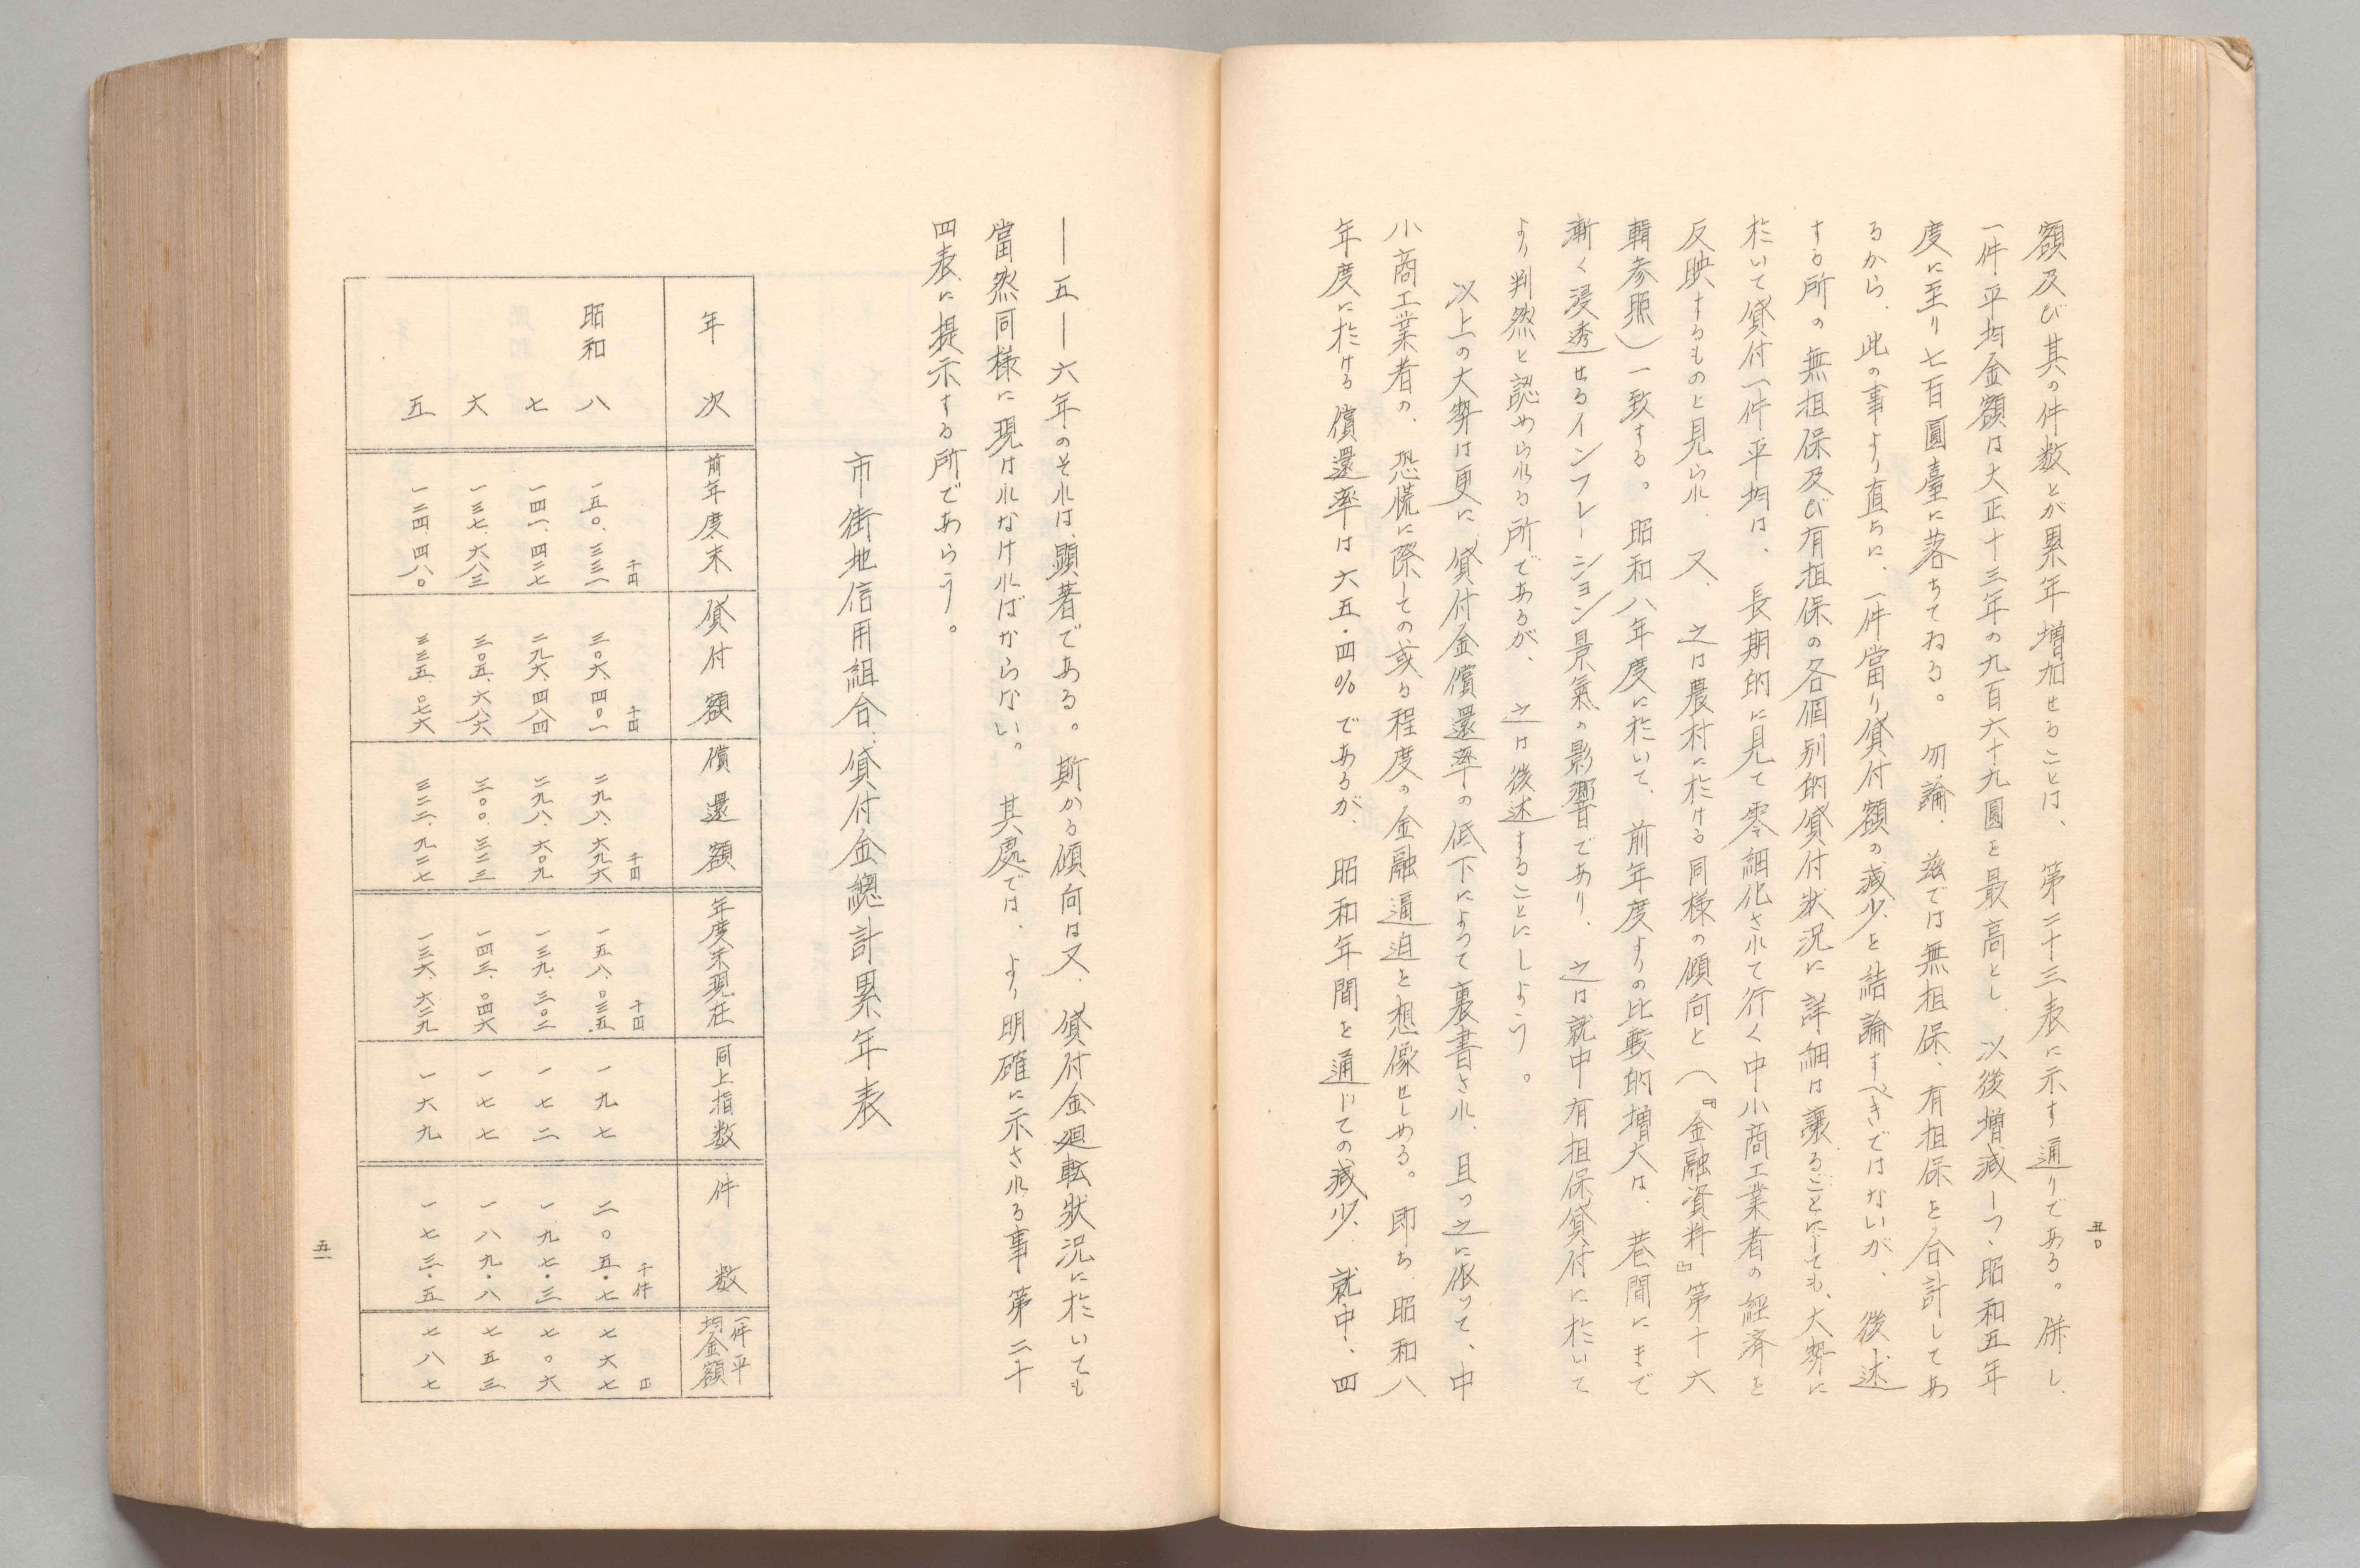 額及び其の件数とが累年増加せることは、第二十三表に示す通りである。併し、
一件平均金額は大正十三年の九百六十九圓を最高とし、以後増減しつつ昭和五年
度に至り七百圓臺に落ちてゐる。勿論、茲では無担保、有担保を合計してあ
るから、此の事より直ちに、一件當り貸付額の減少を結論すべきではないが、後述
する所の無担保及び有担保の各個別的貸付状況に詳細は譲ることにしても、大勢に
於いて貸付一件平均は、長期的に見て零細化されて行く中小商工業者の経済を
反映するものと見られ、又、之は農村に於ける同様の傾向と(『金融資料』第十六
輯参照)一致する。昭和八年度に於いて、前年度よりの比較的増大は、巷間にまで
漸く浸透せるインフレーション景氣の影響であり、之は就中有担保貸付に於いて
より判然と認められる所であるが、之は後述することにしよう。
以上の大勢は更に、貸付金償還率の低下によつて裏書され、且つ之に依つて、中
小商工業者の、恐慌に際しての或る程度の金融逼迫を想像せしめる。即ち、昭和八
年度に於ける償還率は六五・四%であるが、昭和年間を通じての減少、就中、四
五〇
―五―六年のそれは顕著である。斯かる傾向は又、貸付金廻転状況に於いても
當然同様に現はれなければならない。其處では、より明確に示される事第二十
四表に提示する所であらう。
市街地信用組合貸付金總計累年表
年次 前年度末 貸付額 償還額 年度末現在 同上指数 件数 一件平均金額
千円 千円 千円 千円 千件 円
昭和八 一五〇、三三一 三〇六、四〇一 二九八、六九六 一五八、〇三五 一九七 二〇五・七 七六七
七 一四一、四二七 二九六、四八四 二九八、六〇九 一三九、三〇二 一七二 一九七・三 七〇六
六 一三七、六八三 三〇五、六八六 三〇〇、三二三 一四三、〇四六 一七七 一八九・八 七五三
五 一二四、四八〇 三三五、〇七六 三二二、九二七 一三六、六二九 一六九 一七三・五 七八七
五一